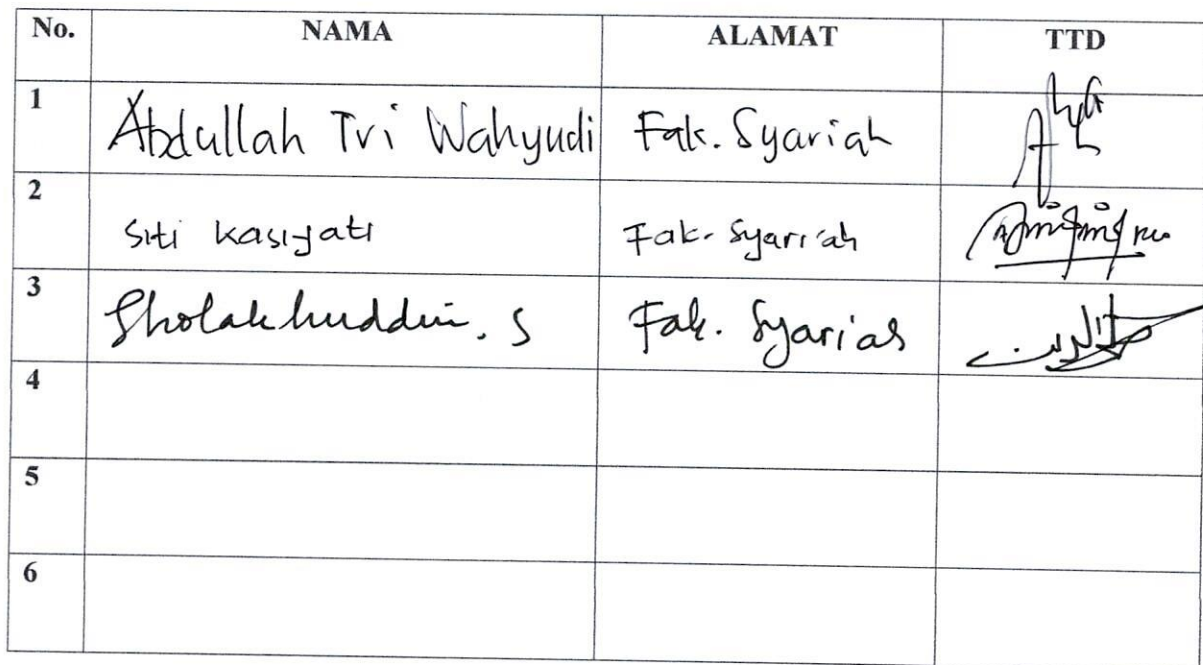 No. NAMA ALAMAT TTD
1 Abdullah Tri Wahyudi Fak. Syariah
2 Siti Kasiyati Fak. Syari'ah
3 Sholakhuddin. S Fak. Syariah
4
5
6